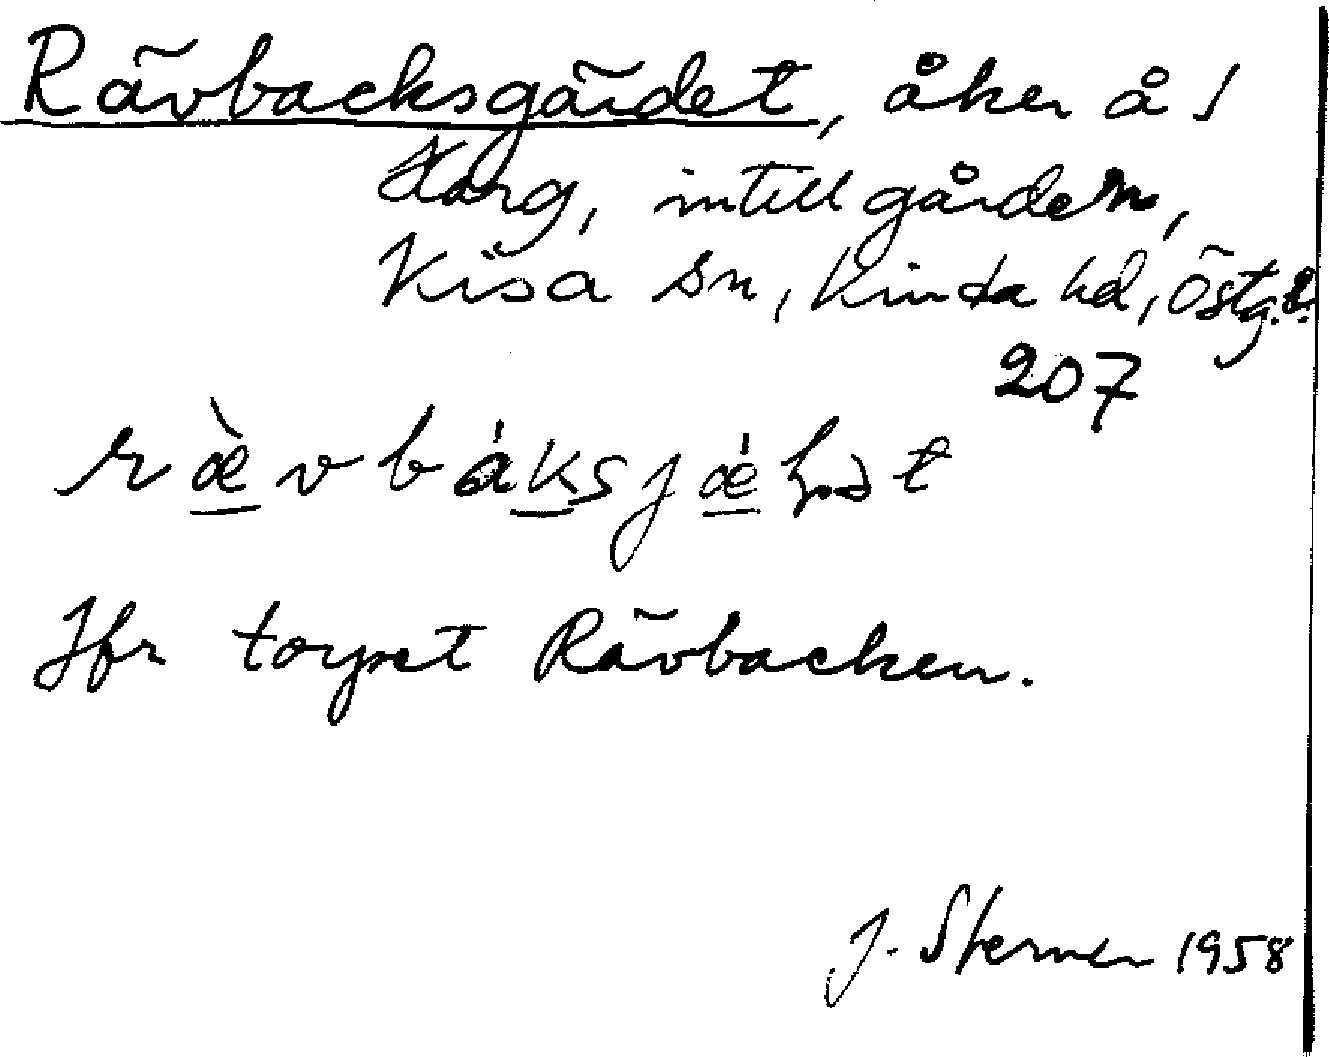 Rävbacksgärdet, åker å /
Harg, intill gården,
Kisa sn, Kinda hd, Östg. l.
207
ræ̀vbáksjǽɽət
Jfr torpet Rävbacken.
J. Sterner 1958